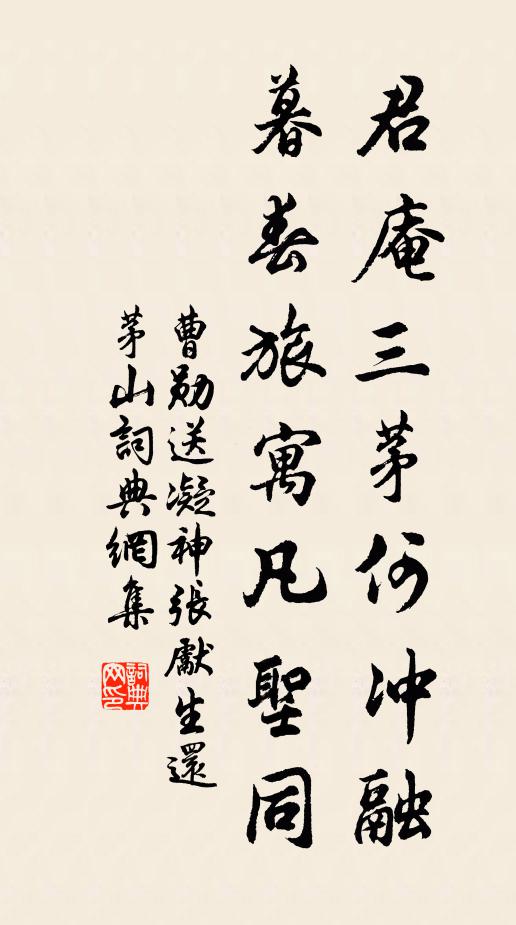 君庵三茅何冲融
暮春旅寓凡聖同
曹勛送凝神張獻生還
茅山詞典網集
詞典網印